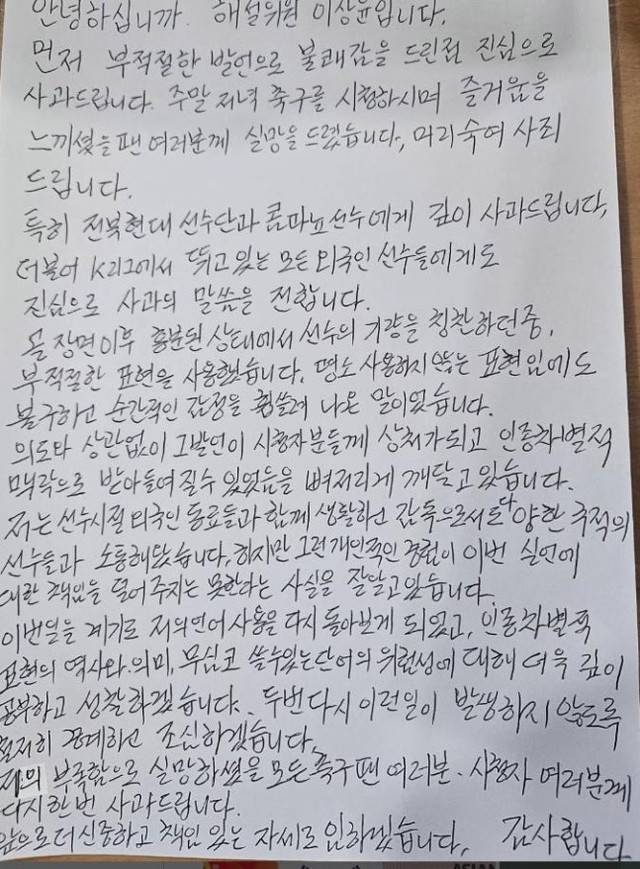 안녕하십니까. 해설위원 이상윤입니다.
먼저 부적절한 발언으로 불쾌감을 드린점 진심으로
사과드립니다. 주말 저녁 축구를 시청하시며 즐거움을
느끼셨을 팬 여러분께 실망을 드렸습니다, 머리숙여 사죄
드립니다.
특히 전북현대 선수단과 콤파뇨선수에게 깊이 사과드립니다,
더불어 K리그에서 뛰고있는 모든 외국인 선수들에게도
진심으로 사과의 말씀을 전합니다.
골 장면이후 흥분된 상태에서 선수의 기량을 칭찬하던중,
부적절한 표현을 사용했습니다. 평소 사용하지 않는 표현임에도
불구하고 순간적인 감정을 휩쓸려 나온 말이었습니다.
의도와 상관없이 그발언이 시청자분들께 상처가되고 인종차별적
맥락으로 받아들여질수 있었음을 뼈저리게 깨닫고있습니다.
저는 선수시절 외국인 동료들과 함께 생활하고 감독으로서도 다양한 국적의
선수들과 소통해왔습니다, 하지만 그런개인적인 경험이 이번 실언에
대한 책임을 덜어주지는 못한다는 사실을 잘알고있습니다.
이번일을 계기로 저의언어사용을 다시 돌아보게 되었고, 인종차별적
표현의 역사와 의미, 무심코 쓸수있는단어의 위험성에 대해 더욱 깊이
공부하고 성찰하겠습니다. 두번다시 이런일이 발생하지 않도록
철저히 경계하고 조심하겠습니다.
저의 부족함으로 실망하셨을 모든축구팬 여러분. 시청자 여러분께
다시한번 사과드립니다.
앞으로더 신중하고 책임 있는 자세로 임하겠습니다, 감사합니다